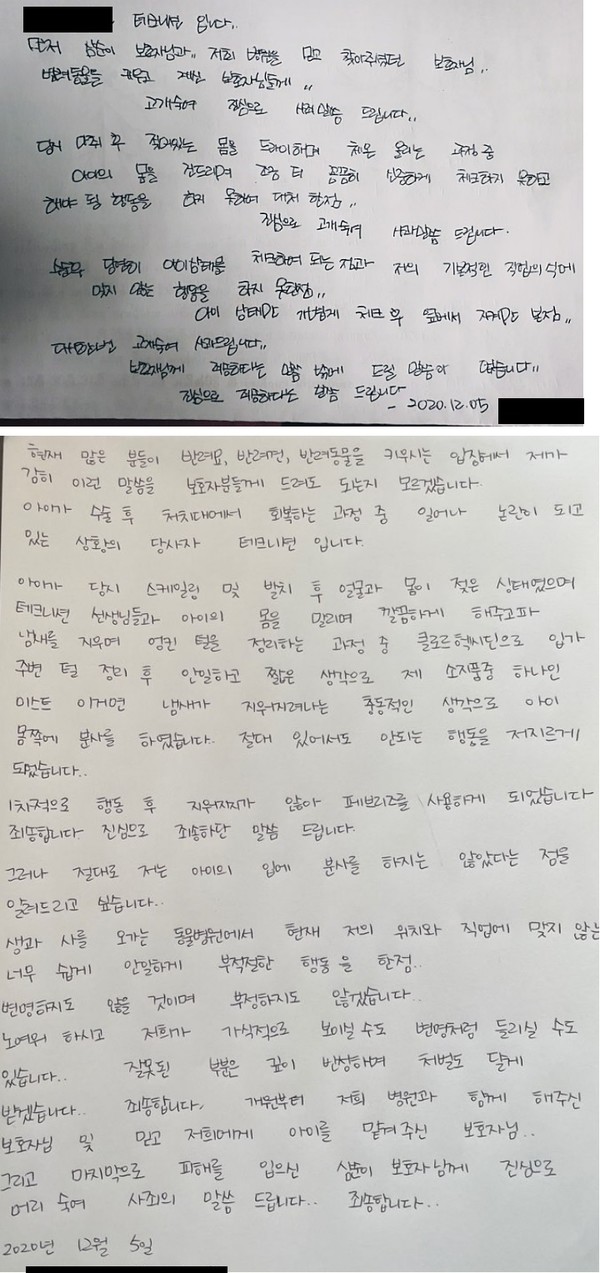 테크니션 입니다..
먼저 순순이 보호자님과.. 저희 병원을 믿고 찾아주셨던 보호자님..
반려동물들 키우고 계신 보호자님들께..
고개숙여 진심으로 사죄말씀 드립니다..
당시 마취 후 젖어있는 몸을 드라이하며 체온 올리는 과정 중
아이의 몸을 건드리며 더 꼼꼼히 신중하게 체크하지 못하고
해야 될 행동을 하지 못하여 대처 한점..
진심으로 고개숙여 사과말씀 드립니다.
당연히 아이상태를 체크하여 되는 점과 저의 기본적인 직업의식에
맞지 않는 행동을 하지 못한점..
아이 상태만 체크 후 옆에서 지켜만 본점..
다시한번 고개숙여 사과드립니다..
보호자님께 죄송하다는 말씀 밖에 드릴 말씀이 없습니다..
진심으로 죄송하다는 말씀 드립니다
- 2020.12.05
현재 많은 분들이 반려묘, 반려견, 반려동물을 키우시는 입장에서 제가
감히 이런 말씀을 보호자분들께 드려도 되는지 모르겠습니다.
아이가 수술 후 처치대에서 회복하는 과정 중 일어나 논란이 되고
있는 상황의 당사자 테크니션 입니다.
아이가 당시 스케일링 및 발치 후 얼굴과 몸이 젖은 상태였으며
테크니션 선생님들과 아이의 몸을 말리며 깔끔하게 해주고파
냄새를 지우며 엉킨 털을 정리하는 과정 중 클로르헥시딘으로 입가
주변 털 정리 후 안일하고 짧은 생각으로 제 소지품중 하나인
미스트 이거면 냄새가 지워지려나는 충동적인 생각으로 아이
몸쪽에 분사를 하였습니다. 절대 있어서도 안되는 행동을 저지르게
되었습니다..
1차적으로 행동 후 지워지지가 않아 페브리즈를 사용하게 되었습니다
죄송합니다. 진심으로 죄송하단 말씀 드립니다.
그러나 절대로 저는 아이의 입에 분사를 하지는 않았다는 점을
알려드리고 싶습니다..
생과 사를 오가는 동물병원에서 현재 저의 위치와 직업에 맞지 않는
너무 쉽게 안일하게 부적절한 행동을 한점..
변명하지도 않을 것이며 부정하지도 않겠습니다..
노여워 하시고 저희가 가식적으로 보이실 수도 변명처럼 들리실 수도
있습니다.. 잘못된 부분은 깊이 반성하며 처벌도 달게
받겠습니다.. 죄송합니다. 개원부터 저희 병원과 함께 해주신
보호자님 및 믿고 저희에게 아이를 맡겨주신 보호자님..
그리고 마지막으로 피해를 입으신 순순이 보호자님께 진심으로
머리 숙여 사죄의 말씀 드립니다.. 죄송합니다..
2020년 12월 5일